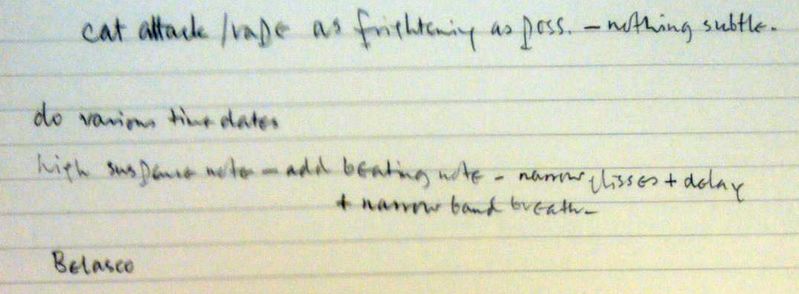 cat attack / rape as frightening as poss. – nothing subtle.
do various time dates
high suspence note – add beating note – narrow glisses + delay
+ narrow band breath –
Belasco